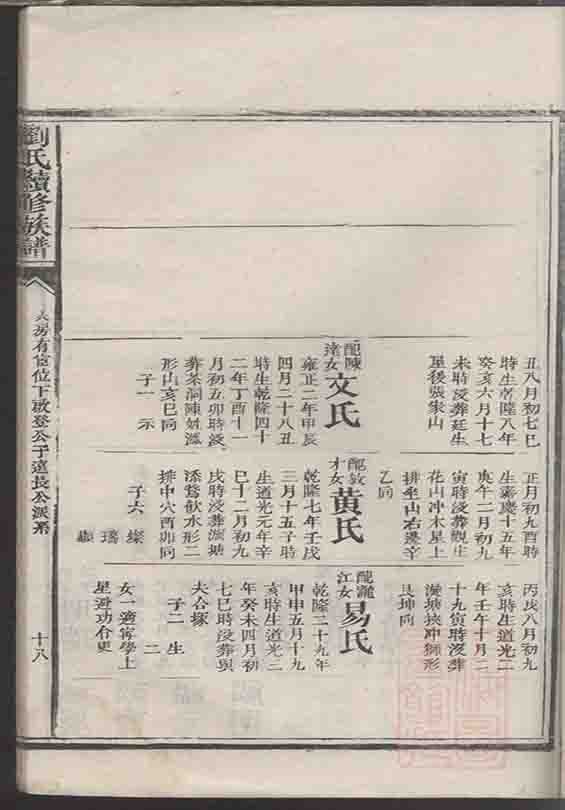 丑八月初七巳
時生乾隆八年
癸亥六月十七
未時歿葬廷生
屋後張家山
配陳
渚女
文氏
雍正二年甲辰
四月二十八丑
時生乾隆四十
二年丁酉十一
月初五卯時歿
葬茶洞陳姓
形山亥巳向
子一 示
正月初九酉時
生嘉慶十五年
庚午二月初九
寅時歿葬觀生
花山冲木星上
排坐山右邊辛
乙向
配敦
才女
黃氏
乾隆七年壬戌
三月十五子時
生道光元年辛
巳十二月初九
戌時歿葬漩塘
添鶩歛水形二
排中穴酉卯向
子六 燦
璹
丙戌八月初九
亥時生道光二
年壬午十月二
十九寅時歿葬
漩塘挾冲獅形
艮坤向
配瀧
江女
易氏
乾隆二十九年
甲申五月十九
亥時生道光三
年癸未四月初
七巳時歿葬與
夫合塚
子二 生
二
女一適甯學上
星遊功合更
劉氏續修族譜
大房有位下啟登公子遠長公派系
十八